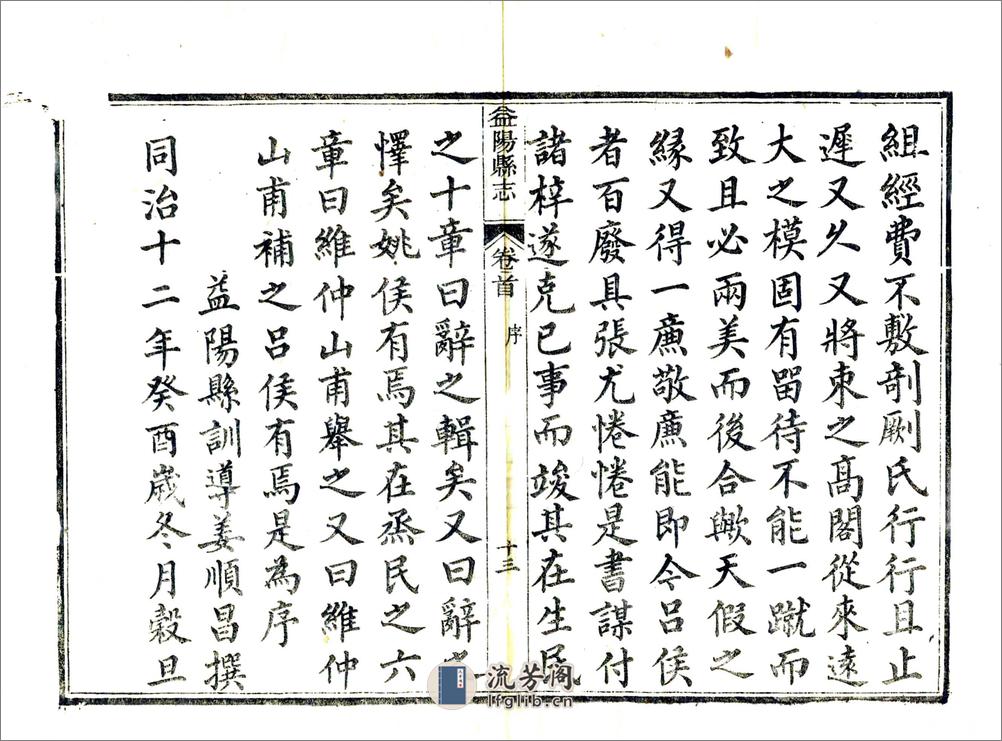 組經費不敷剞劂氏行行且止
遲又久又將束之高閣從來遠
大之模固有留待不能一蹴而
致且必兩美而後合歟天假之
緣又得一廉敬廉能即今呂侯
者百廢具張尤惓惓是書謀付
諸梓遂克已事而竣其在生民
益陽縣志 卷首 序 十三
之十章曰辭之輯矣又曰辭之
懌矣姚侯有焉其在烝民之六
章曰維仲山甫舉之又曰維仲
山甫補之呂侯有焉是為序
益陽縣訓導姜順昌撰
同治十二年癸酉歲冬月穀旦
流芳阁
lfglib.cn